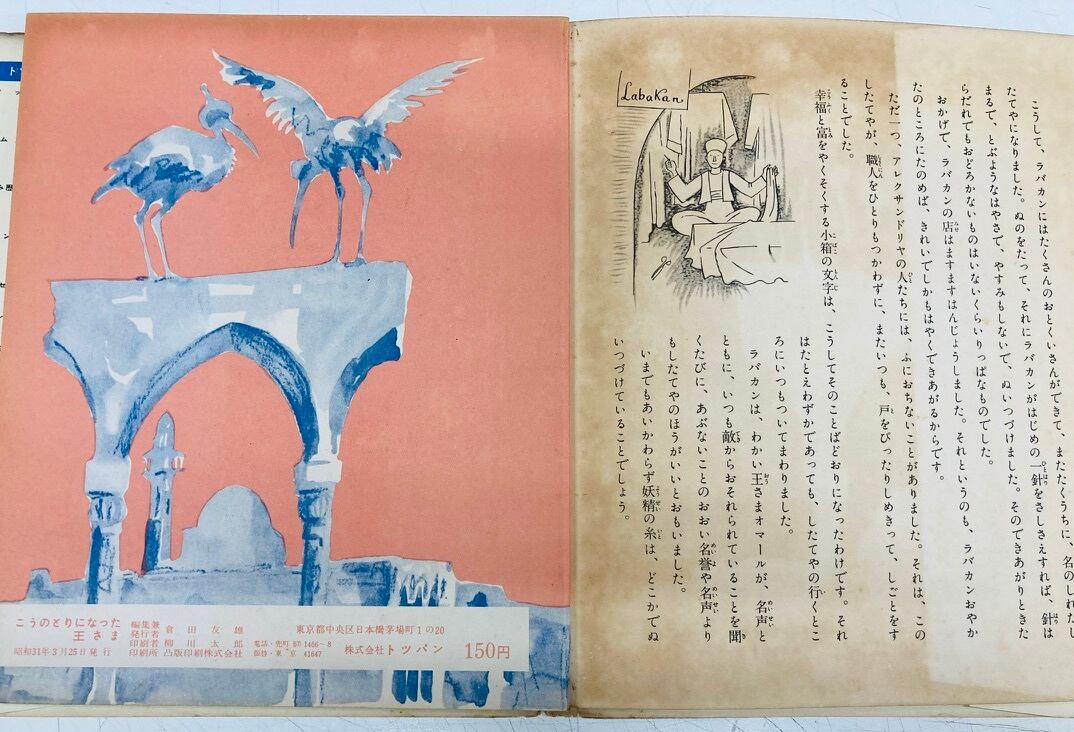 こうして、ラバカンにはたくさんのおとくいさんができて、またたくうちに、名のしれたし
たてやになりました。ぬのをたって、それにラバカンがはじめの一針をさしさえすれば、針は
まるで、とぶようなはやさで、やすみもしないで、ぬいつづけました。そのできあがりときた
らだれでもおどろかないものはいないくらいりっぱなものでした。
おかげで、ラバカンの店はますますはんじょうしました。それというのも、ラバカンおやか
たのところにたのめば、きれいでしかもはやくできあがるからです。
ただ一つ、アレクサンドリヤの人たちには、ふにおちないことがありました。それは、この
したてやが、職人をひとりもつかわずに、またいつも、戸をぴったりしめきって、しごとをす
ることでした。
幸福と富をやくそくする小箱の文字は、こうしてそのことばどおりになったわけです。それ
はたとえわずかであっても、したてやの行くとこ
ろにいつもついてまわりました。
ラバカンは、わかい王さまオマールが、名声と
ともに、いつも敵からおそれられていることを聞
くたびに、あぶないことのおおい名誉や名声より
もしたてやのほうがいいとおもいました。
いまでもあいかわらず妖精の糸は、どこかでぬ
いつづけていることでしょう。
Labakan
こうのとりになった
王さま
昭和31年3月25日 発行
編集兼
発行者 倉田友雄
印刷者 柳川太郎
印刷所 凸版印刷株式会社
東京都中央区日本橋茅場町1の20
電話・兜町(67)1466〜8
振替・東京 41647
株式会社トッパン
150円